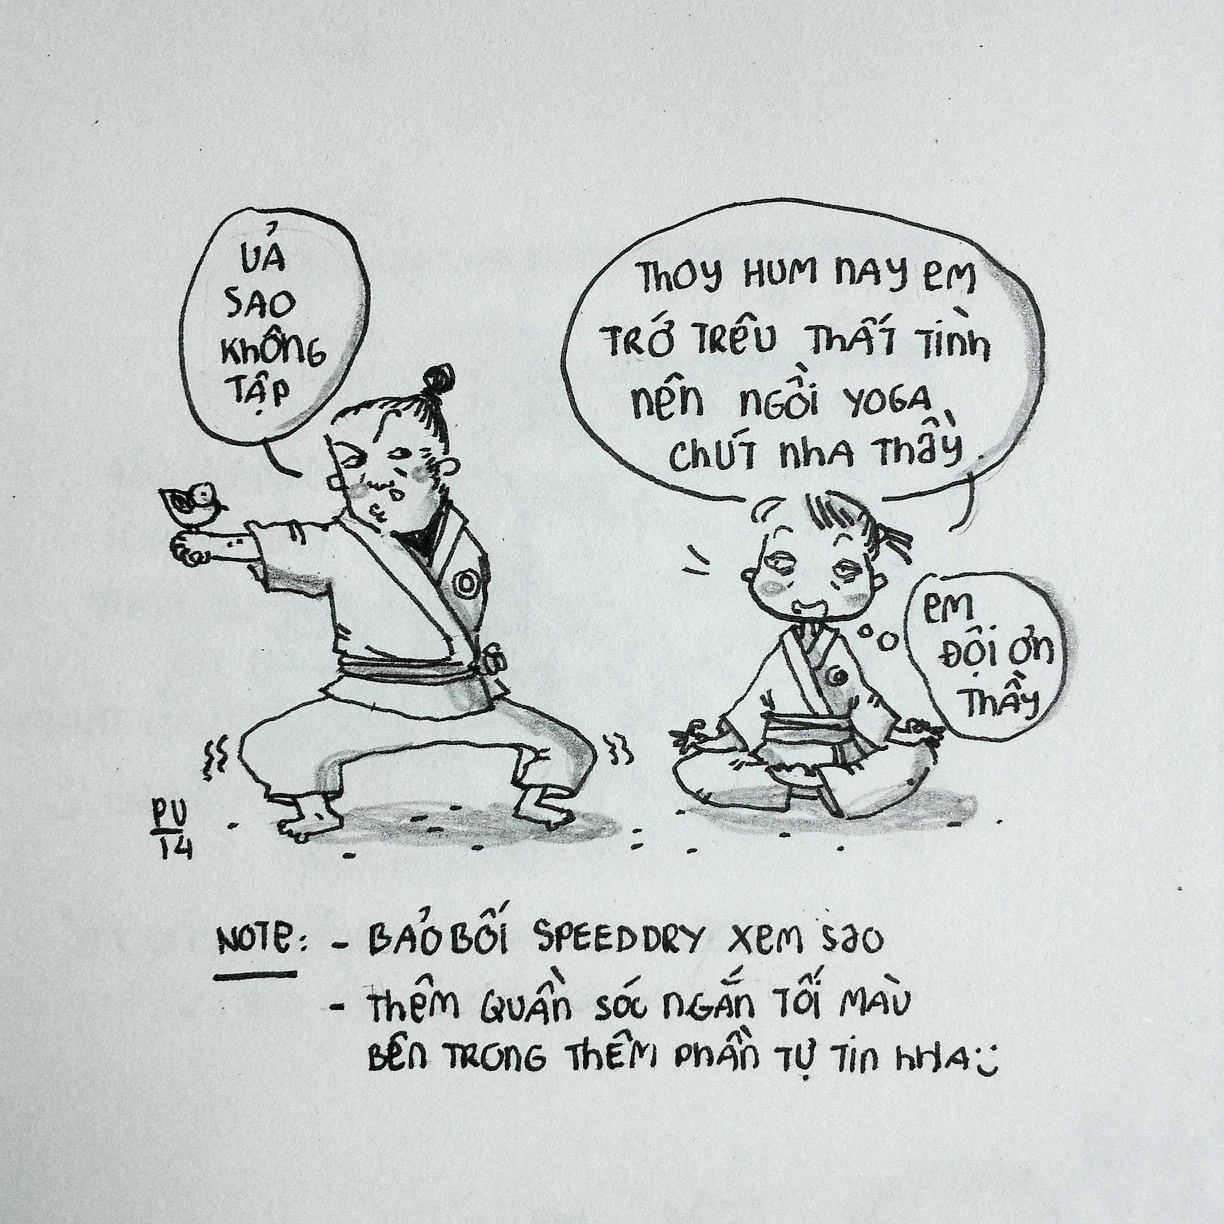 UẢ
SAO
KHÔNG
TẬP
THOY HUM NAY EM
TRỚ TRÊU THẤT TÌNH
NÊN NGỒI YOGA
CHÚT NHA THẦY
EM
ĐỘI ƠN
THẦY
PU
14
NOTE: - BẢO BỐI SPEEDDRY XEM SAO
- THÊM QUẦN SÓC NGẮN TỐI MÀU
BÊN TRONG THÊM PHẦN TỰ TIN NHA :)